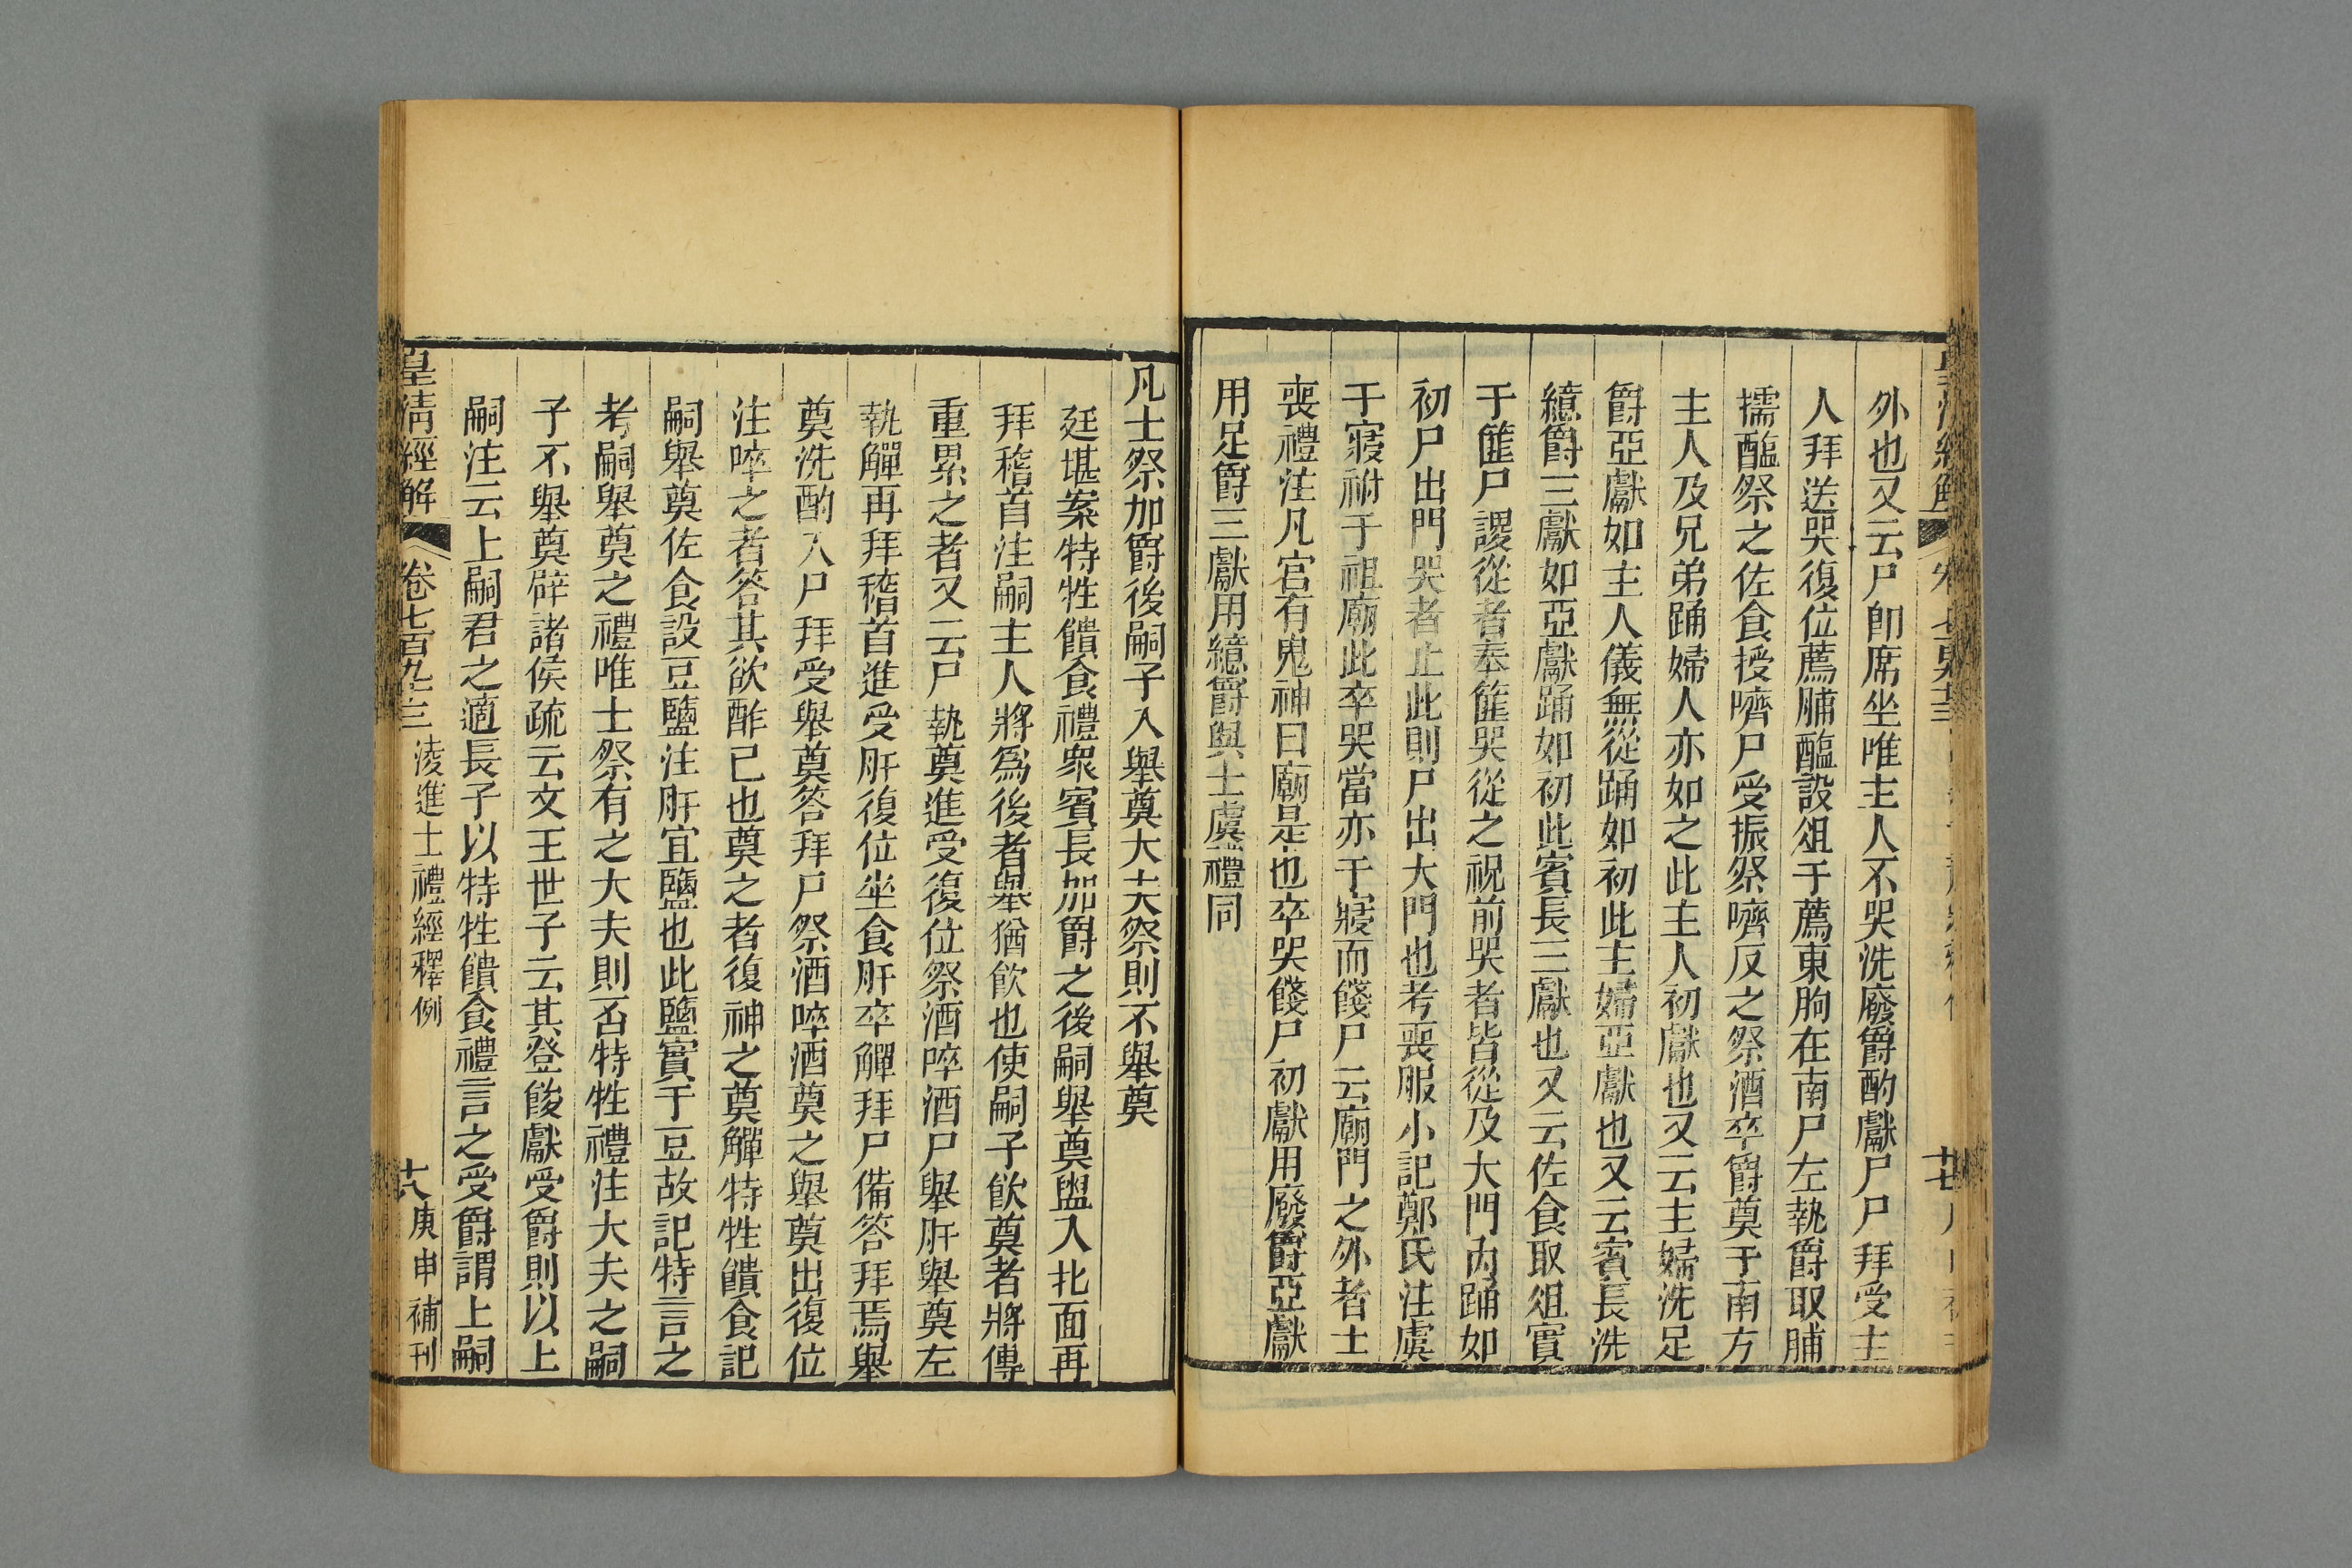 外也又云尸卽席坐唯主人不哭洗廢爵酌獻尸尸拜受主
人拜送哭復位薦脯醢設俎于薦東朐在南尸左執爵取脯
擩醢祭之佐食授嚌尸受振祭嚌反之祭酒卒爵奠于南方
主人及兄弟踊婦人亦如之此主人初獻也又云主婦洗足
爵亞獻如主人儀無從踊如初此主婦亞獻也又云賓長洗
繶爵三獻如亞獻踊如初此賓長三獻也又云佐食取俎實
于篚尸謖從者奉篚哭從之祝前哭者皆從及大門內踊如
初尸出門哭者止此則尸出大門也考喪服小記鄭氏注虞
于寢祔于祖廟此卒哭當亦于寢而餞尸云廟門之外者士
喪禮注凡宮有鬼神曰廟是也卒哭餞尸初獻用廢爵亞獻
用足爵三獻用繶爵與士虞禮同
凡士祭加爵後嗣子入舉奠大夫祭則不舉奠
廷堪案特牲饋食禮眾賓長加爵之後嗣舉奠盥入北面再
拜稽首注嗣主人將爲後者舉猶飮也使嗣子飮奠者將傳
重累之者又云尸執奠進受復位祭酒啐酒尸舉肝舉奠左
執觶再拜稽首進受肝復位坐食肝卒觶拜尸備答拜焉舉
奠洗酌入尸拜受舉奠答拜尸祭酒啐酒奠之舉奠出復位
注啐之者答其欲酢己也奠之者復神之奠觶特牲饋食記
嗣舉奠佐食設豆鹽注肝宜鹽也此鹽實于豆故記特言之
考嗣舉奠之禮唯士祭有之大夫則否特牲禮注大夫之嗣
子不舉奠辟諸侯疏云文王世子云其登餕獻受爵則以上
嗣注云上嗣君之適長子以特牲饋食禮言之受爵謂上嗣
皇清經解 卷七百九十三 淩進士禮經釋例 十八 庚申補刊